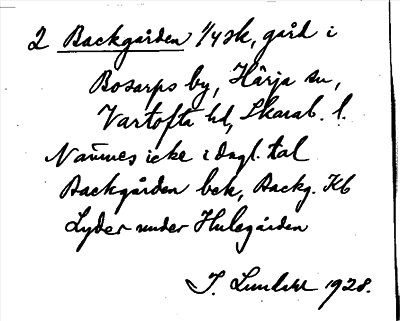 2 Backgården 1/4 sk, gård i
Bosarps by, Härja sn,
Vartofta hd, Skarab. l.
Nämnes icke i dagl. tal
Backgården bek, Backg. Kb
Lyder under Hulegården
1928.